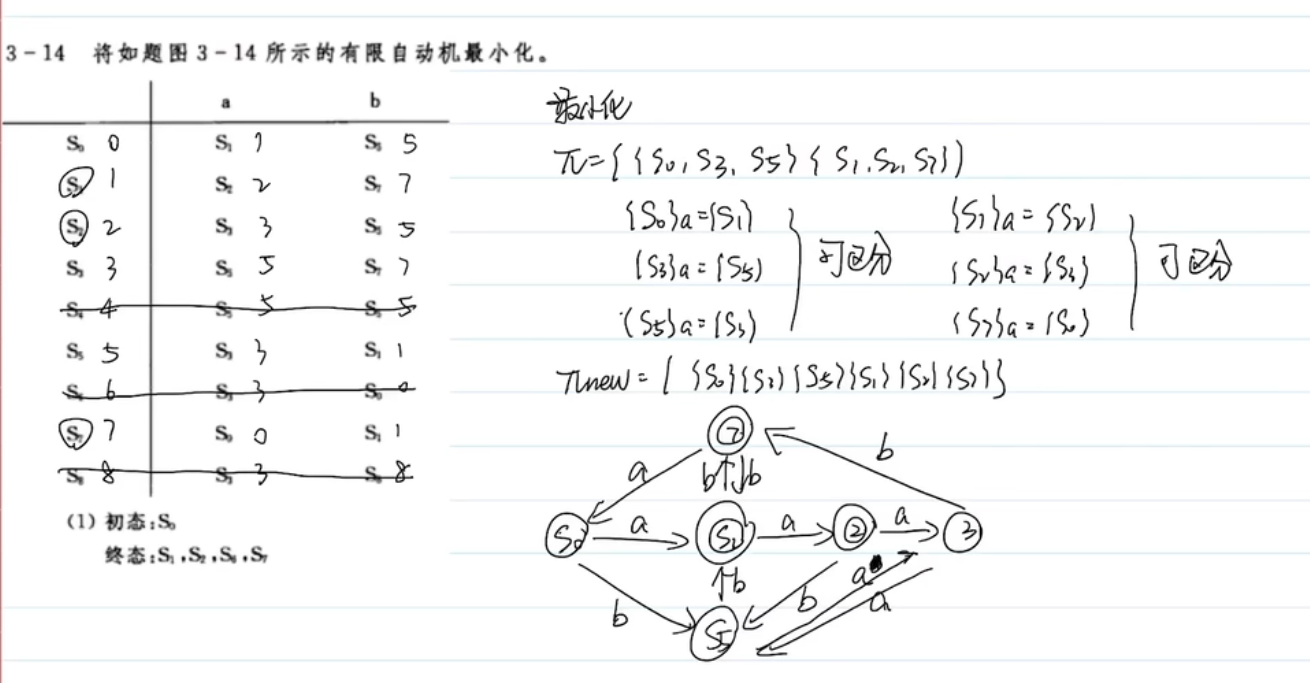 3-14 将如题图3-14所示的有限自动机最小化。
a b
S₀ 0 S₁ 1 S₅ 5
S₁ 1 S₂ 2 S₇ 7
S₂ 2 S₃ 3 S₅ 5
S₃ 3 S₅ 5 S₇ 7
S₄ 4 S₅ 5 S₅ 5
S₅ 5 S₃ 3 S₁ 1
S₆ 6 S₃ 3 S₀ 0
S₇ 7 S₀ 0 S₁ 1
S₈ 8 S₃ 3 S₈ 8
(1) 初态:S₀
终态:S₁,S₂,S₆,S₇
最小化
π={{S₀,S₃,S₅}{S₁,S₂,S₇})
{S₀}a={S₁}
{S₃}a={S₅)
{S₅}a={S₃)
可区分
{S₁}a={S₂)
{S₂}a={S₃}
{S₇}a={S₀}
可区分
πnew={{S₀}{S₃}{S₅}{S₁}{S₂}{S₇}}
7
a b b b
S₀ a S₁ a 2 a 3
b b b a a
S₅